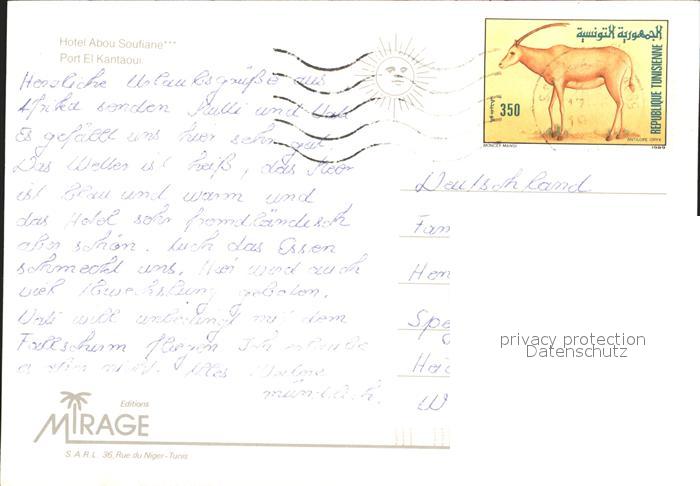 Hotel Abou Soufiane***
Port El Kantaoui
Herzliche Urlaubsgrüße aus
Afrika senden und Uli
Es gefällt uns hier sehr gut
Das Wetter ist heiß, das Meer
ist blau und warm und
das Hotel sehr fremdländisch
aber schön. Auch das Essen
schmeckt uns. Hier wird auch
viel Abwechslung geboten.
Uli will unbedingt mit dem
Fallschirm fliegen Ich erlaube
es ihm nicht. Alles Weitere
mündlich.
Editions
MIRAGE
S.A.R.L. 36, Rue du Niger-Tunis
الجمهورية التونسية
REPUBLIQUE TUNISIENNE
350
MONCEF MANSI
ANTILOPE ORYX
1989
Deutschland
Fam
Her
Spe
Ha
W
privacy protection
Datenschutz